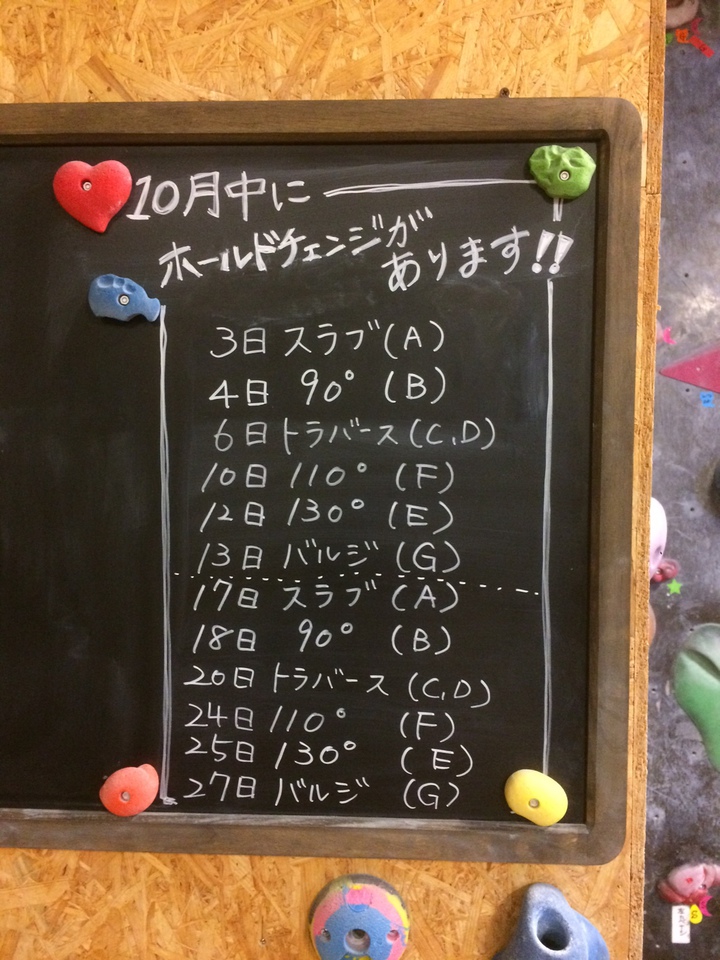 10月中に
ホールドチェンジが
あります!!
3日 スラブ(A)
4日 90° (B)
6日 トラバース(C,D)
10日 110° (F)
12日 130° (E)
13日 バルジ (G)
17日 スラブ (A)
18日 90° (B)
20日 トラバース (C,D)
24日 110° (F)
25日 130° (E)
27日 バルジ (G)